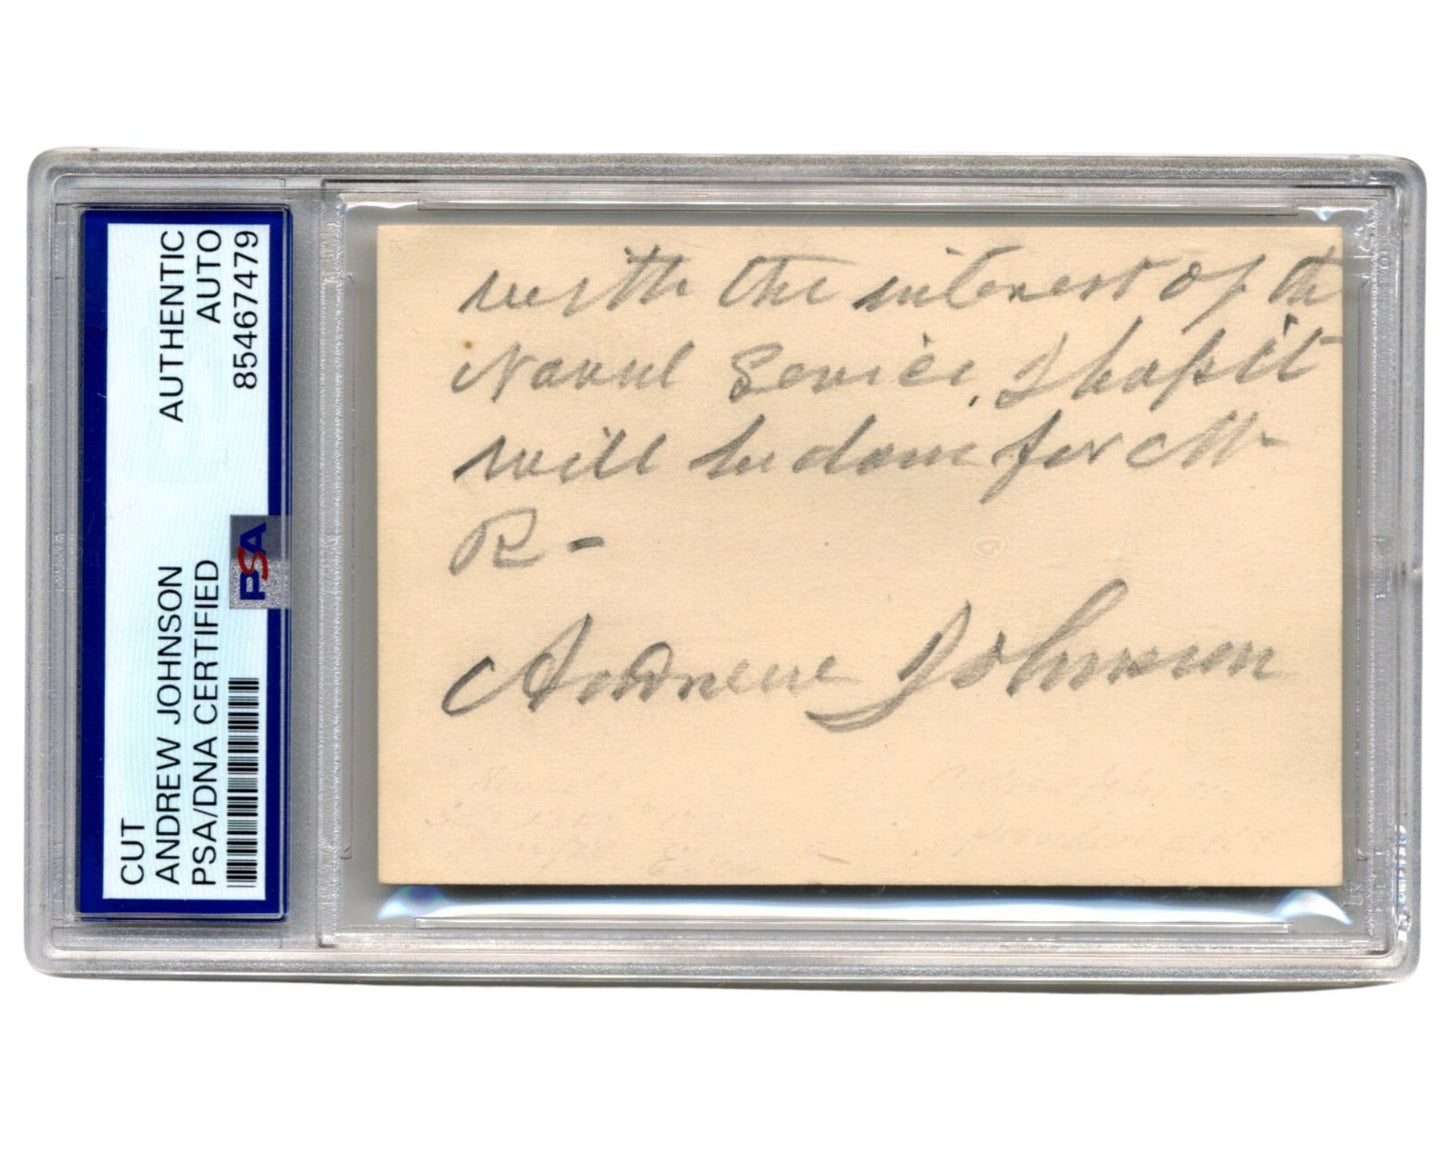 CUT
ANDREW JOHNSON
PSA/DNA CERTIFIED
AUTHENTIC
AUTO
85467479
PSA
with the interest of the
Naval Service, I hope it
will be done for Mr
R-
Andrew Johnson